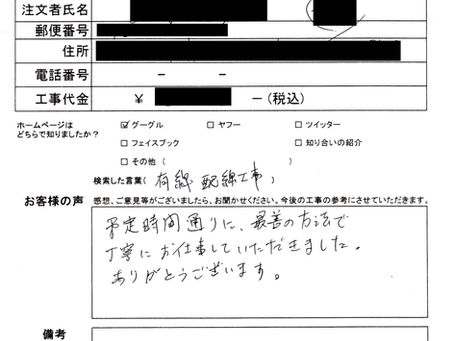 注文者氏名
郵便番号
住所
電話番号 － －
工事代金 ￥ －(税込)
ホームページは
どちらで知りましたか？
☑グーグル □ヤフー □ツイッター
□フェイスブック □知り合いの紹介
□その他( )
検索した言葉( 有線 配線工事 )
お客様の声 感想、ご意見等がございましたら、お聞かせください。今後の工事の参考にさせていただきます。
予定時間通りに、最善の方法で
丁寧にお仕事していただきました。
ありがとうございます。
備考